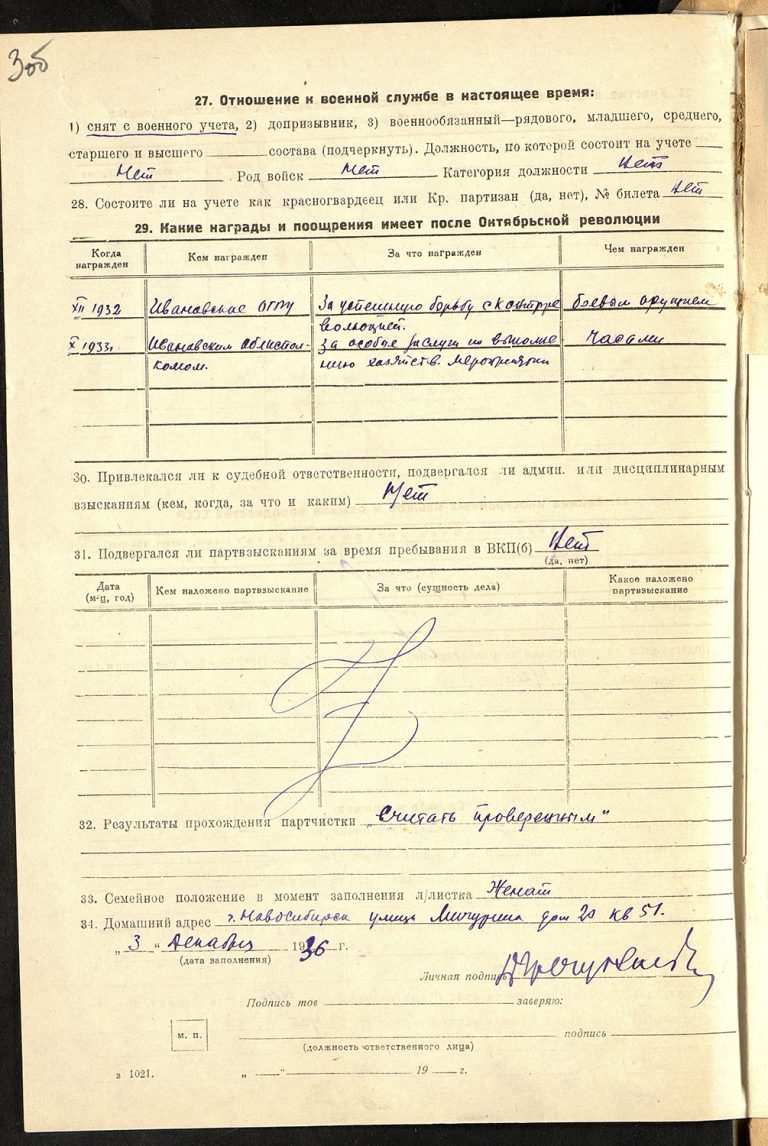 306
27. Отношение к военной службе в настоящее время:
1) снят с военного учета, 2) допризывник, 3) военнообязанный—рядового, младшего, среднего,
старшего и высшего состава (подчеркнуть). Должность, по которой состоит на учете
Нет . Род войск Нет Категория должности Нет
28. Состоите ли на учете как красногвардеец или Кр. партизан (да, нет), № билета Нет
29. Какие награды и поощрения имеет после Октябрьской революции
Когда награжден Кем награжден За что награжден Чем награжден
XII 1932 Ивановское ОГПУ За успешную борьбу с контрре боевым оружием
волюцией.
X 1933г. Ивановским облиспол- За особые заслуги по выполне Часами
комом. нию хозяйств. мероприятий
30. Привлекался ли к судебной ответственности, подвергался ли админ. или дисциплинарным
взысканиям (кем, когда, за что и каким) Нет
31. Подвергался ли партвзысканиям за время пребывания в ВКП(б) Нет
(да, нет)
Дата (м-ц, год) Кем наложено партвзыскание За что (сущность дела) Какое наложено партвзыскание
Z
32. Результаты прохождения партчистки „Считать проверенным"
33. Семейное положение в момент заполнения л/листка Женат
34. Домашний адрес г. Новосибирск улица Мичурина дом 20 кв 51.
„ 3 " Декабря 1936 г.
(дата заполнения)
Личная подпись
Подпись тов заверяю:
м. п. подпись
(должность ответственного лица)
з 1021. „ — " 19 г.